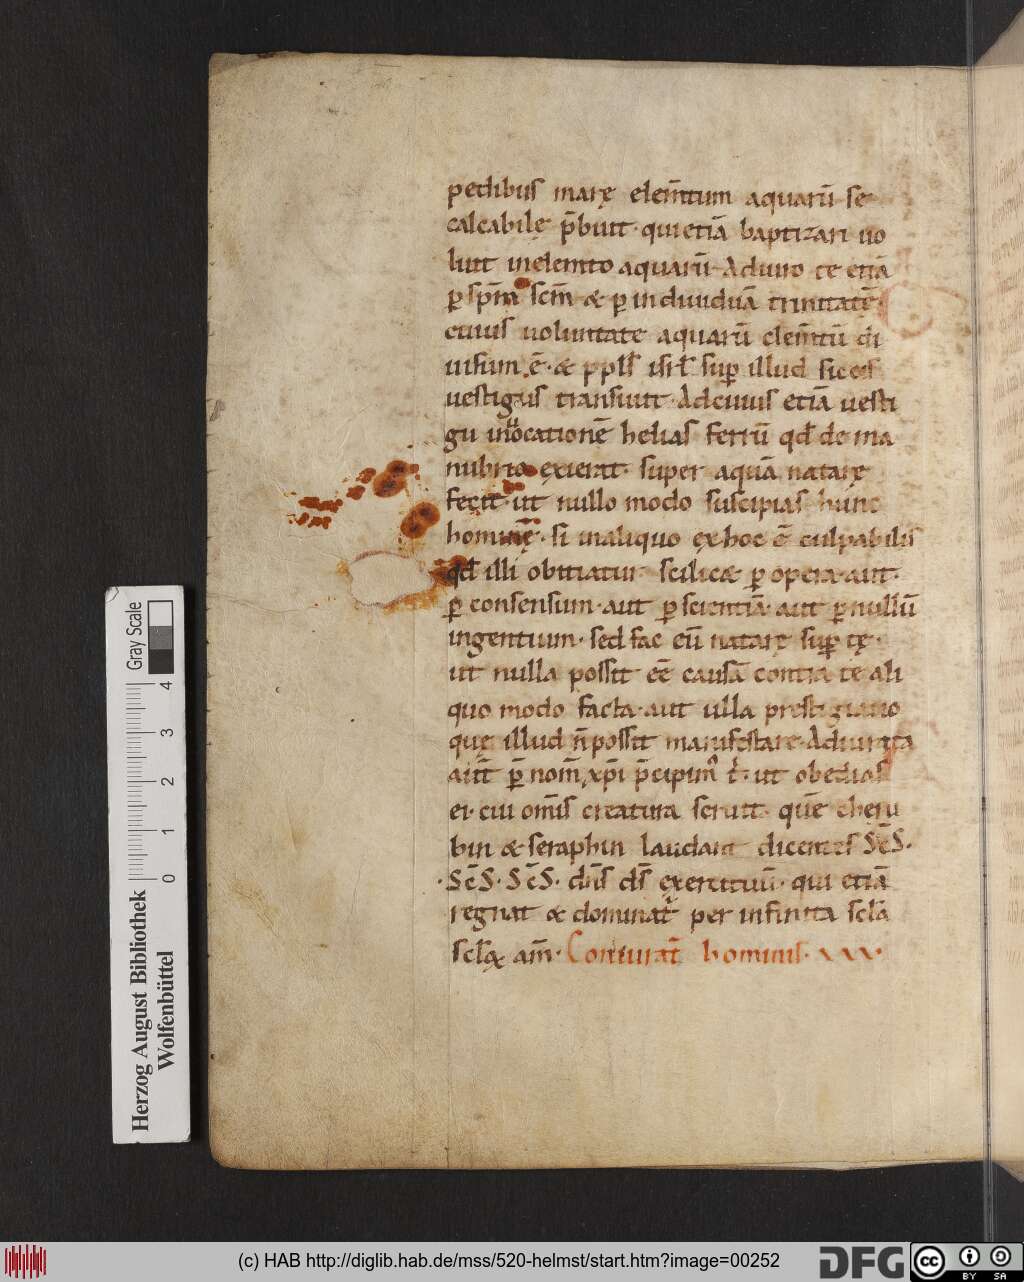 pedibus marę elem̄tum aquarū se
calcabile p̄buit· qui etiā baptizari uo
luit in elemto aquarū· Adiuro te etiā
ꝑ sp̄m scm̄ & ꝑ indiuiduā trinitatē·
cuius uoluntate aquarū elem̄tū di
uisum ē· & ppls̄ isrl̄ suꝑ illud siccis
uestigiis transiuit· Ad cuius etiā uesti
gii inuocationē helias ferrū qd̄ de ma
nubrio exierat· super aquā natare
fecit· ut nullo modo suscipias hunc
hominē· si in aliquo ex hoc ē culpabilis
qd̄ illi obitiatur scilic& ꝑ opera· aut·
ꝑ consensum· aut ꝑ scientiā· aut ꝑ nullū
ingentium· sed fac eū natare suꝑ tę·
ut nulla possit eē causa contra te ali
quo modo facta· aut ulla prestigiatio
quę illud n̄ possit manifestare· Adiurata
aut̄ ꝑ nom̄ xp̄i p̄cipim᷒ t᷒· ut obedias
ei· cui om̄is creatura seruit· quē cheru
bin & seraphin laudant dicentes ScS·
·ScS· ScS· dn̄s ds̄ exercituū· qui etiā
regnat & dominat᷒ per infinita scl̄a
scl̄oꝝ am̄· Coniurat̄ hominis· XXX·
Gray Scale
0 1 2 3 4
Herzog August Bibliothek
Wolfenbüttel
(c) HAB http://diglib.hab.de/mss/520-helmst/start.htm?image=00252
DFG
cc
BY SA